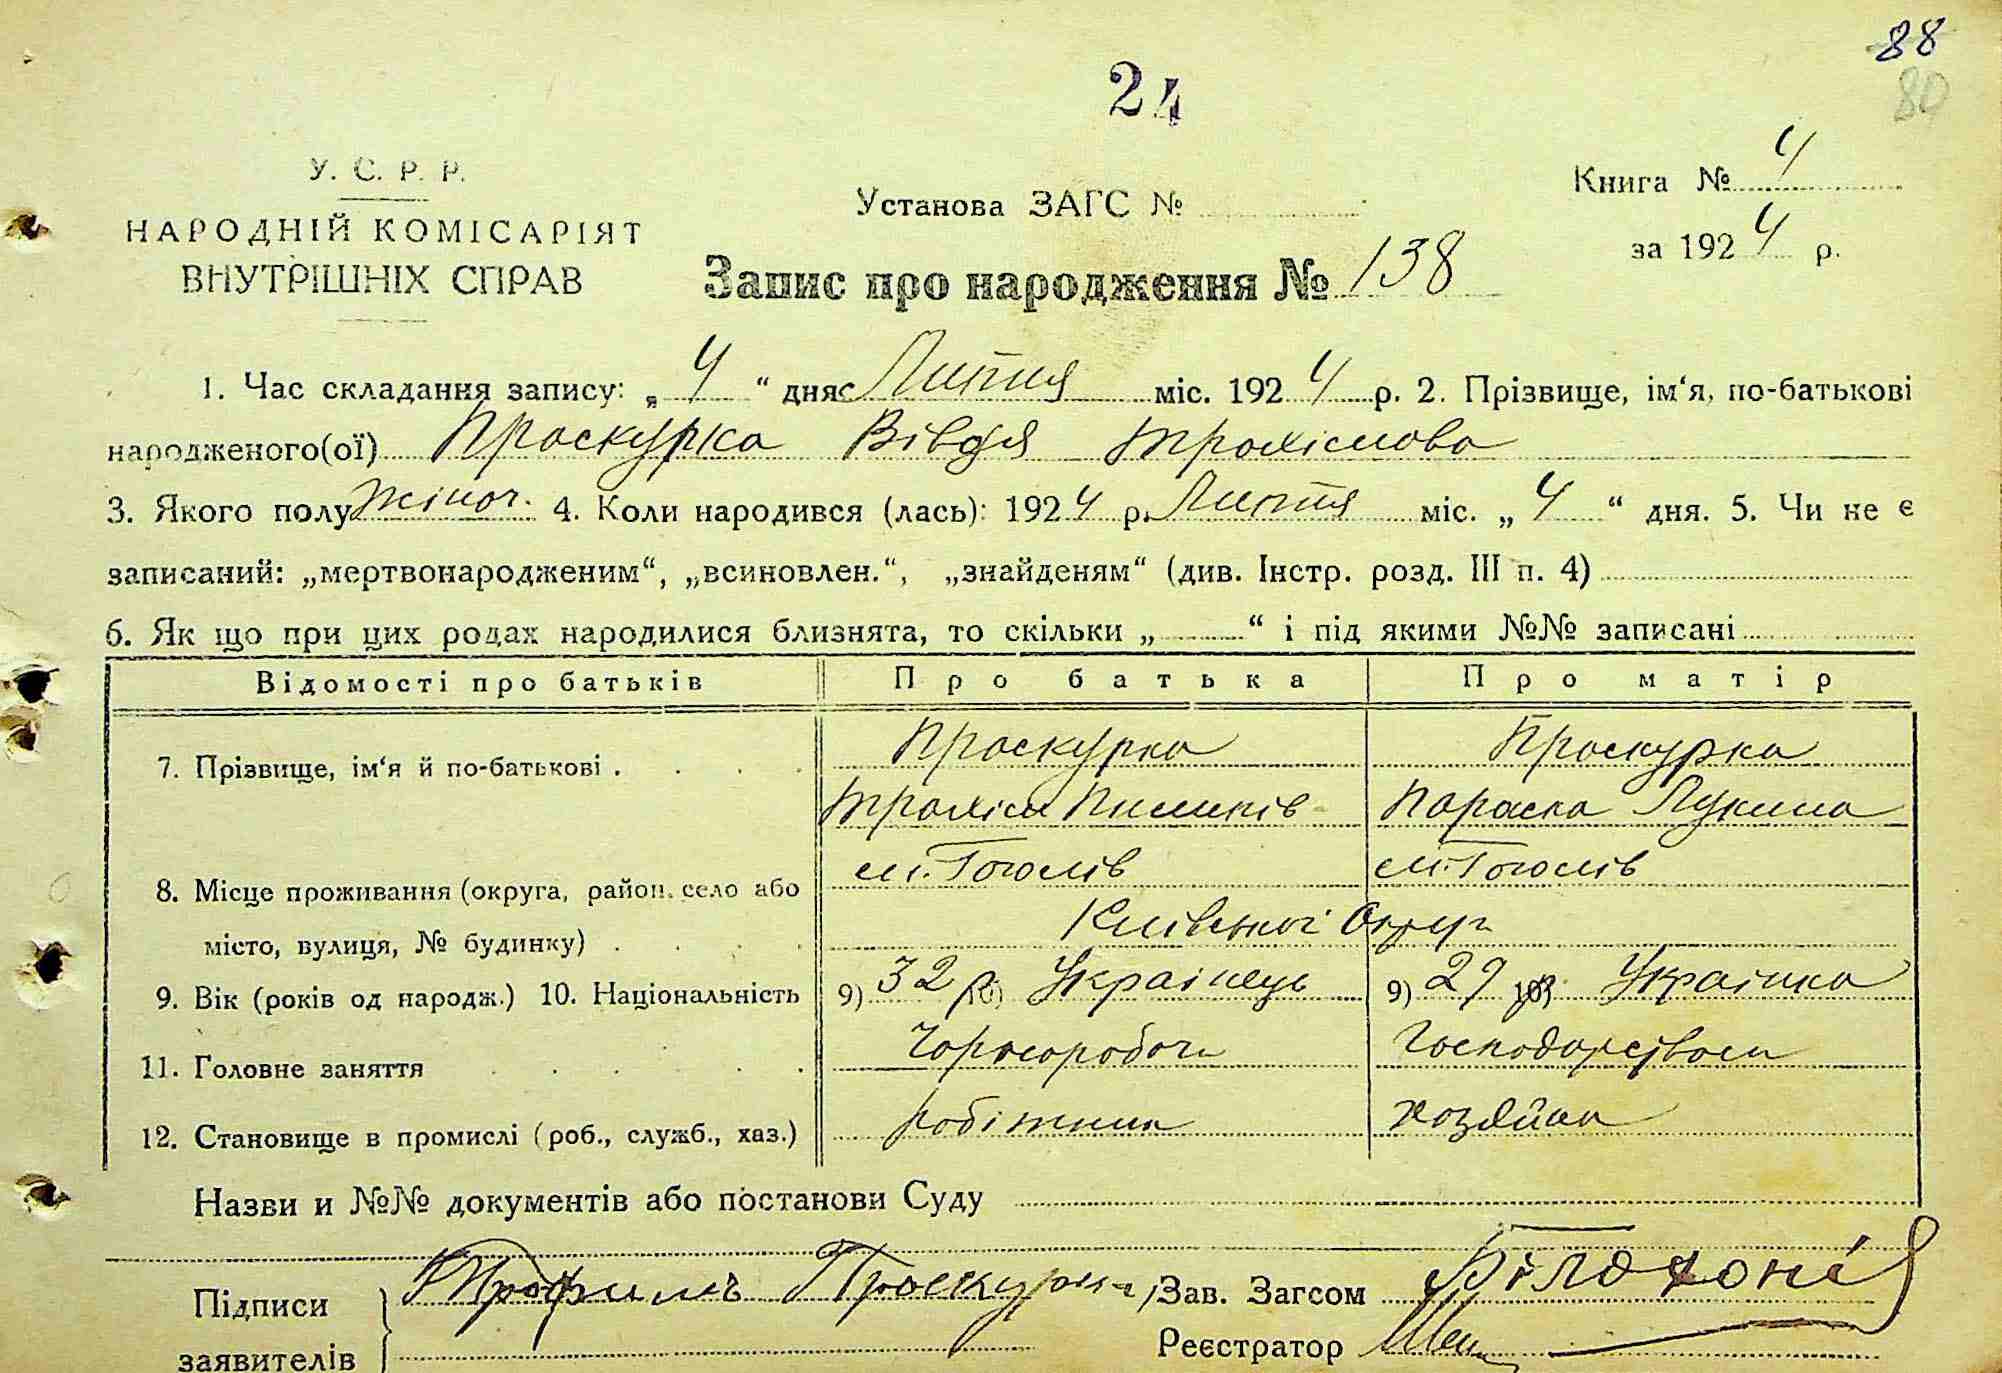 88
80
24
У. С. Р. Р.
НАРОДНІЙ КОМІСАРІЯТ
ВНУТРІШНІХ СПРАВ
Установа ЗАГС №
Книга № 4
за 1924 р.
Запис про народження № 138
1. Час складання запису: „ 4 “ дня Липня міс. 1924 р. 2. Прізвище, ім‘я, по-батькові
народженого(ої) Проскурка Вівдя Трохімова
3. Якого полу жіноч. 4. Коли народився (лась): 1924 р. Липня міс. „ 4 “ дня. 5. Чи не є
записаний: „мертвонародженим“, „всиновлен.“, „знайденям“ (див. Інстр. розд. III п. 4)
6. Як що при цих родах народилися близнята, то скільки „ “ і під якими №№ записані
Відомості про батьків Про батька Про матір
7. Прізвище, ім‘я й по-батькові . Проскурка Проскурка
Трохім Пилипків Параска Лукина
8. Місце проживання (округа, район. село або м. Гоголів м. Гоголів
місто, вулиця, № будинку) . Київської Округи
9. Вік (років од народж.) 10. Національність 9) 32 р. 10) Українець 9) 29 р. 10) Українка
11. Головне заняття Чорнороб Господарством
12. Становище в промислі (роб., служб., хаз.) робітник хозяйка
Назви и №№ документів або постанови Суду
Підписи Трофимъ Проскурка Зав. Загсом
заявителів Реєстратор